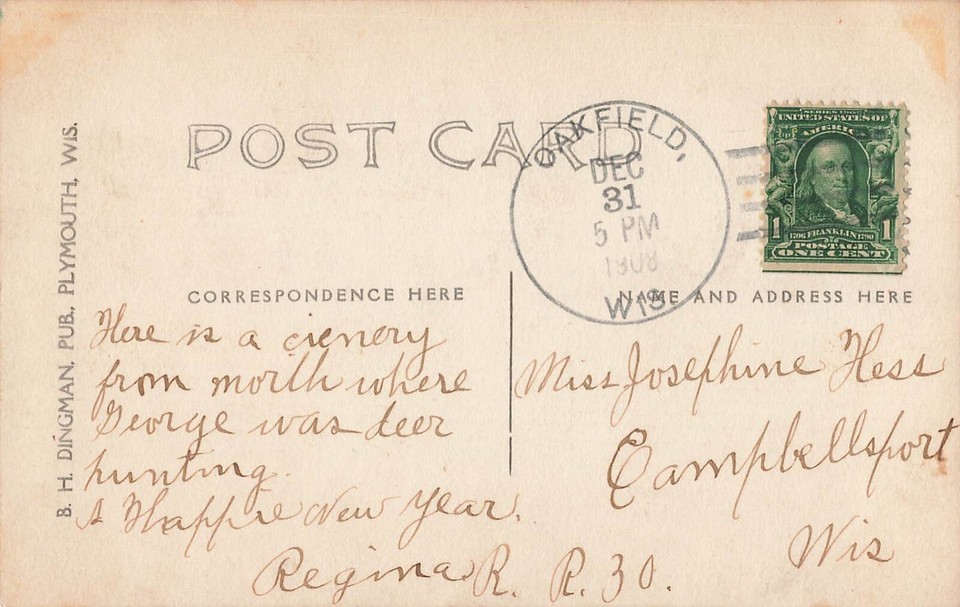 B. H. DINGMAN, PUB., PLYMOUTH, WIS.
POST CARD
OAKFIELD,
DEC
31
5 PM
1908
WIS.
SERIES 1902
UNITED STATES OF
AMERICA
1 1706 FRANKLIN 1790 1
POSTAGE
ONE CENT
CORRESPONDENCE HERE
NAME AND ADDRESS HERE
Here is a cienery
from north where
George was deer
hunting.
A Happie New Year.
Regina
Miss Josephine Hess
Campbellsport
Wis
R. R. 30.